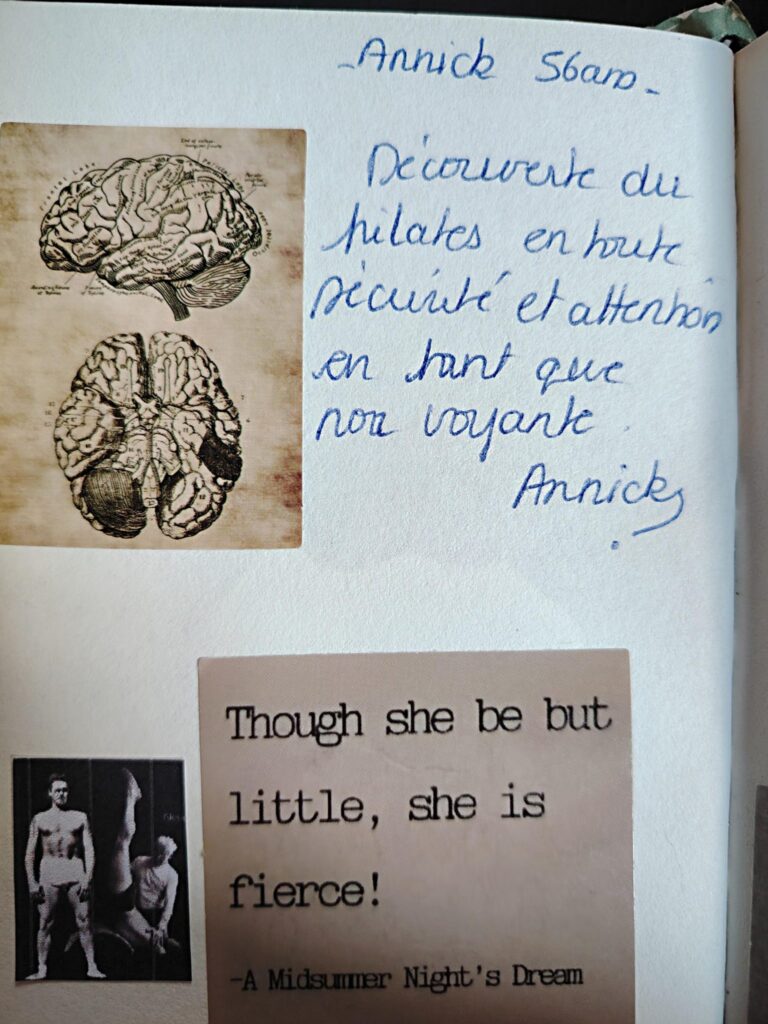 - Annick Sbaro -
Découverte du
pilates en toute
sécurité et attention
en tant que
non voyante.
Annick
Though she be but
little, she is
fierce!
-A Midsummer Night's Dream